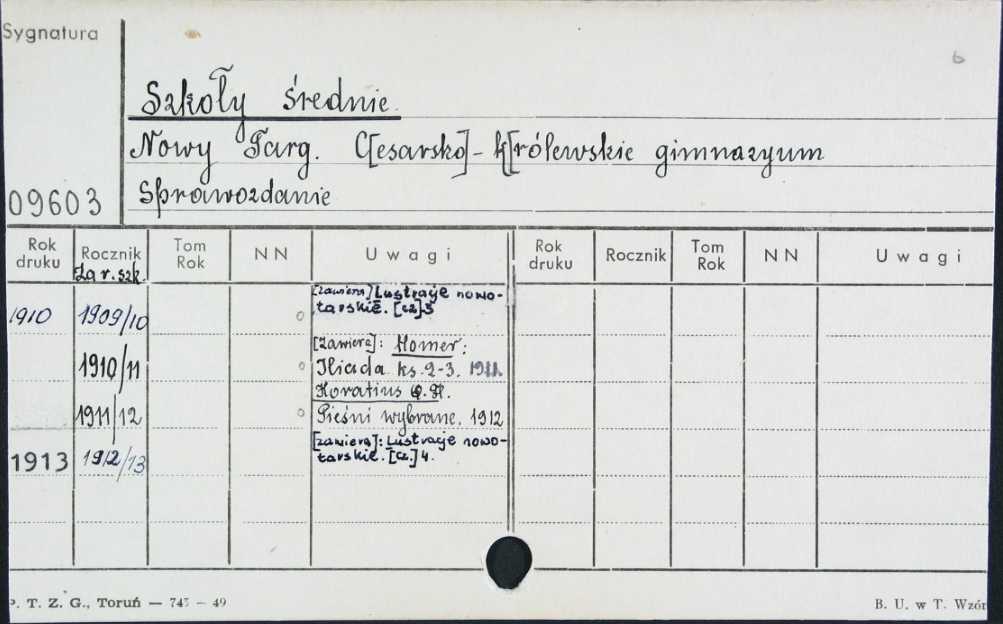 Sygnatura
6
Szkoły średnie.
Nowy Targ. C[esarsko]-k[rólewskie gimnazyum
Sprawozdanie
09603
Rok druku Rocznik Tom Rok NN Uwagi Rok druku Rocznik Tom Rok NN Uwagi
Za r. szk.
1910 1909/10 [zawiera] Lustracje nowo-
tarskie. [cz.] 3
[Zawiera]: Homer:
1910/11 Iliada ks. 2-3. 1911.
Horatius Q. Fl.
1911/12 Pieśni wybrane. 1912
[zawiera]: Lustracje nowo-
1913 1912/13 tarskie. [cz.] 4.
P. T. Z. G., Toruń — 745 — 49 B. U. w T. Wzór